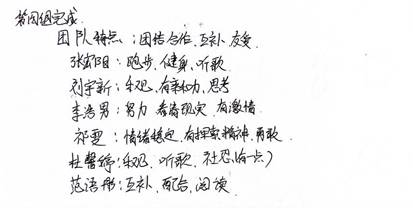 第四组完成
团队特点：团结合作，互补友爱
张宸阳：跑步，健身，听歌
刘宇新：乐观，有亲和力，思考
李浩男：努力 着眼现实 有激情
祁雯：情绪稳定，有探索精神，勇敢
杜馨婷：乐观，听歌，社恐（有一点）
范洁彤：互补，配合，阅读